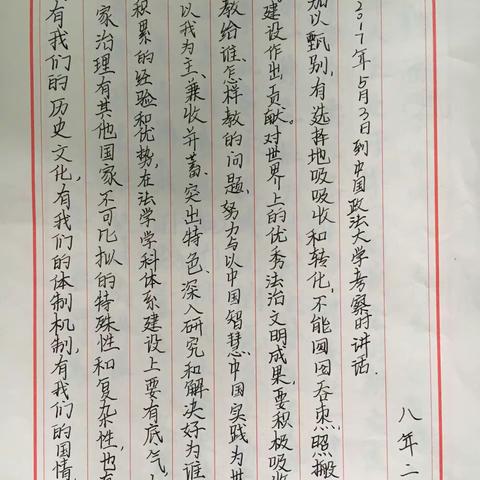 有我们的历史文化,有我们的体制机制,有我们的国情
家治理有其他国家不可比拟的特殊性和复杂性,也有
积累的经验和优势,在法学学科体系建设上要有底气、
以我为主、兼收并蓄、突出特色、深入研究和解决好为谁
教给谁、怎样教的问题,努力与以中国智慧、中国实践为世
建设作出贡献。对世界上的优秀法治文明成果,要积极吸收
加以甄别,有选择地吸吸收和转化,不能囫囵吞枣、照搬
2017年5月3日到中国政法大学考察时讲话.
八年二